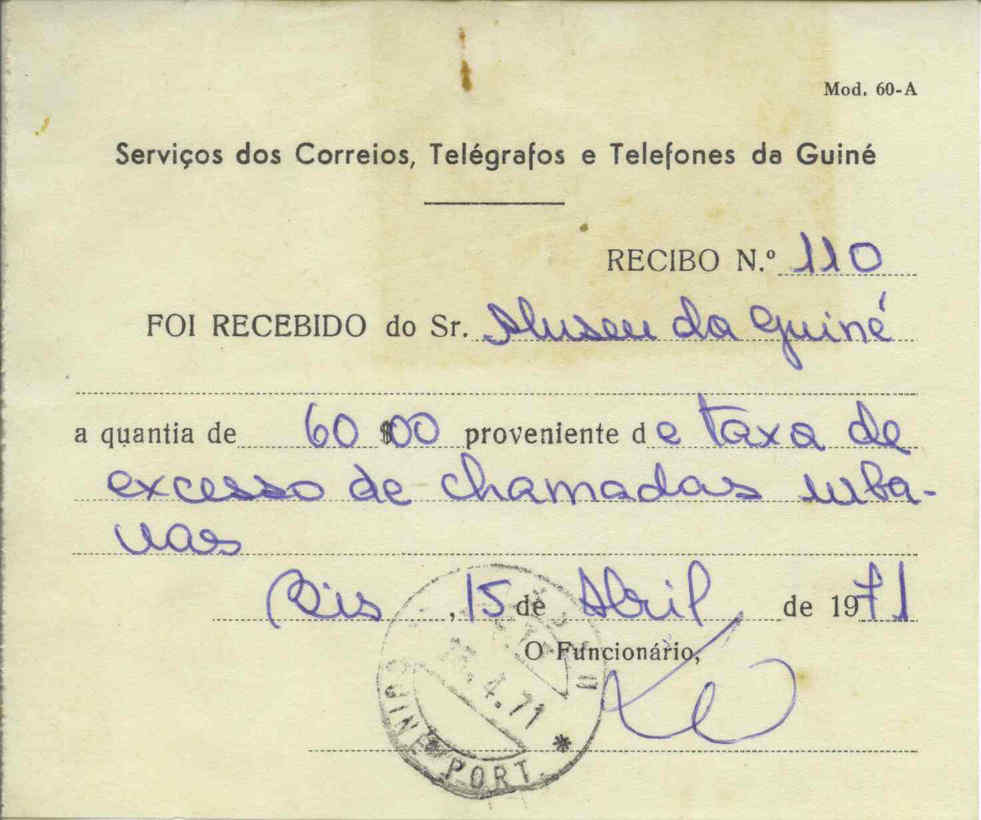 Mod. 60-A
Serviços dos Correios, Telégrafos e Telefones da Guiné
RECIBO N.º 110
FOI RECEBIDO do Sr. Museu da Guiné
a quantia de 60$00 proveniente de taxa de
excesso de chamadas urba-
nas
Bis, 15 de Abril de 1971
O Funcionário,
15.4.71
GUINÉ PORT.